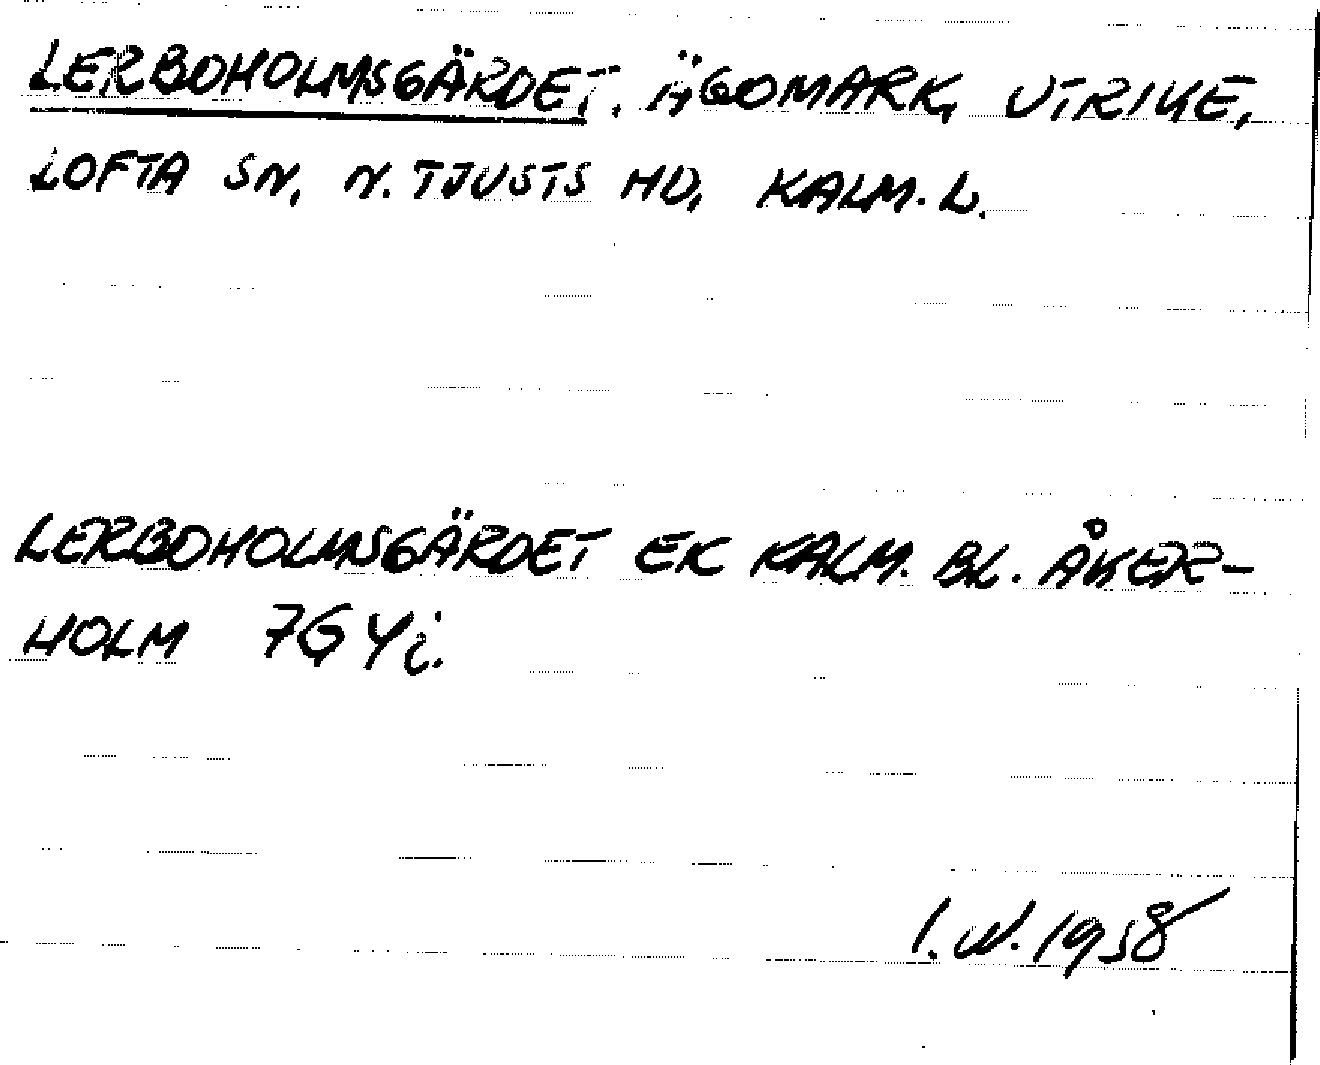 LERBOHOLMSGÄRDET. ÄGOMARK, UTRIKE,
LOFTA SN, N. TJUSTS HD, KALM. L.
LERBOHOLMSGÄRDET EK KALM. BL. ÅKER-
HOLM 7G4i.
I.W.1958